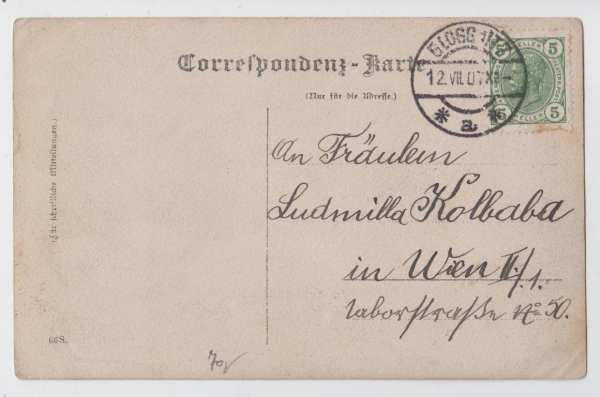 Correspondenz-Karte
(Nur für die Adresse.)
GLOGGNITZ
12.VII.07
*a*
5 5
HELLER
5 5
HELLER
(Für schriftliche Mitteilungen.)
An Fräulein
Ludmilla Kolbaba
in Wien II./1.
Taborstraße No 50.
66S.
70